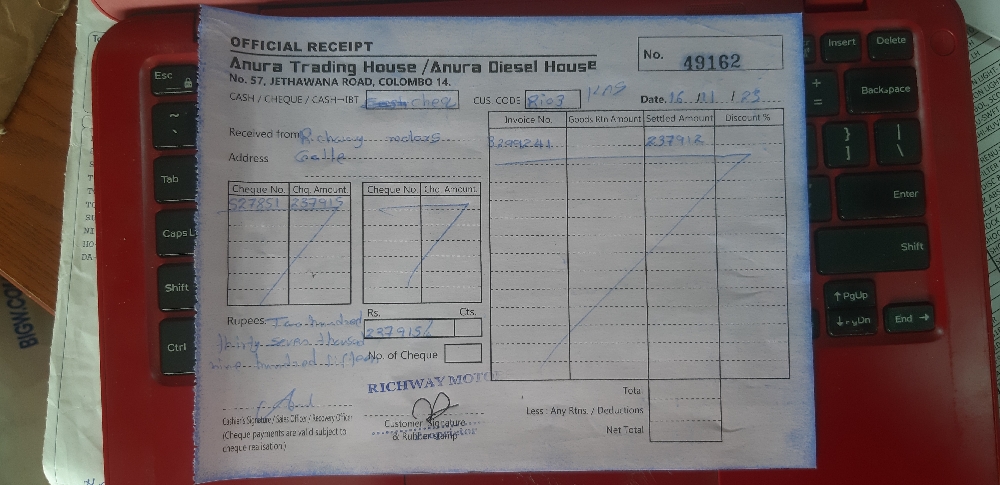 OFFICIAL RECEIPT
Anura Trading House / Anura Diesel House
No. 57, JETHAWANA ROAD, COLOMBO 14.
No. 49162
CASH / CHEQUE / CASH-IBT cheq CUS. CODE Ri03 Date. 16 /01 / 23
Received from Richway motors
Address Galle
Invoice No. Goods Rtn Amount Settled Amount Discount %
237912
Cheque No. Chq. Amount Cheque No. Chq. Amount
527851 237915
Rupees. Two hundred
thirty seven thousand
nine hundred fifteen
Rs. Cts.
237915/
No. of Cheque
RICHWAY MOTO
Cashier's Signature / Sales Officer / Recovery Officer
(Cheque payments are valid subject to
cheque realisation.)
Customer Signature
& Rubber stamp
Total
Less : Any Rtns. / Deductions
Net Total
Esc
~
`
Tab
Caps L
Shift
Ctrl
Insert Delete
+
=
Backspace
}
]
|
\
Enter
Shift
PgUp
End